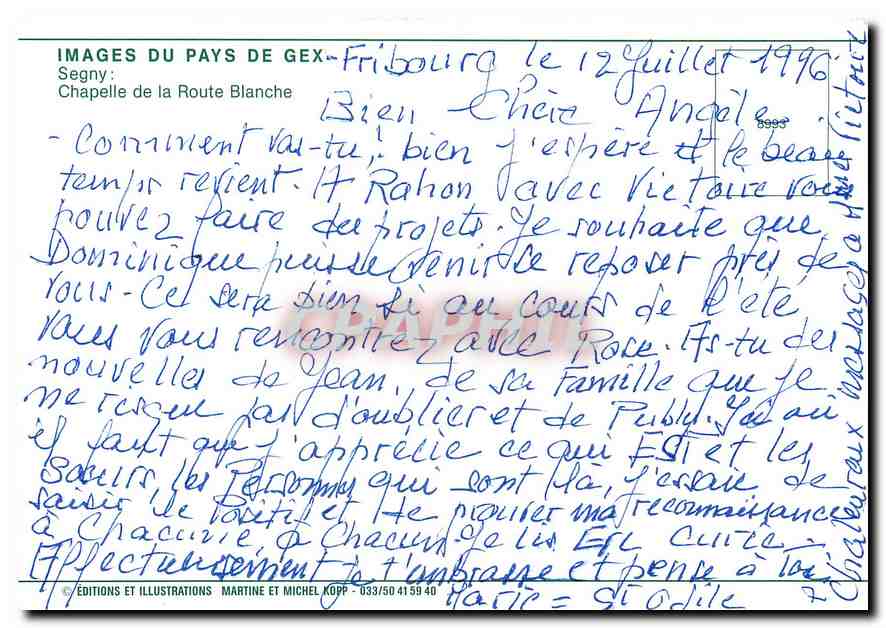 IMAGES DU PAYS DE GEX
Segny:
Chapelle de la Route Blanche
8993
Fribourg le 12 Juillet 1996
Bien Chère Angèle.
- Comment vas-tu! bien j'espère et le beau
temps revient. A Rahon avec Victoire vous
pouvez faire du projets. Je souhaite que
Dominique puisse venir se reposer près de
vous - Ce sera bien si au cours de l'été
vous vous rencontrez avec Rose. As-tu des
nouvelles de Jean, de sa Famille que je
ne risque pas d'oublier et de Publy.
il faut que j'apprécie ce qui EST et les
Soeurs, les Personnes qui sont là, j'essaie de
saisir le Positif et de prouver ma reconnaissance
à Chacune, à Chacun. Je
Affectueusement je t'embrasse et pense à Toi
Marie = St Odile
Chaleureux messages à Mme Victoire
© ÉDITIONS ET ILLUSTRATIONS MARTINE ET MICHEL KOPP - 033/50 41 59 40